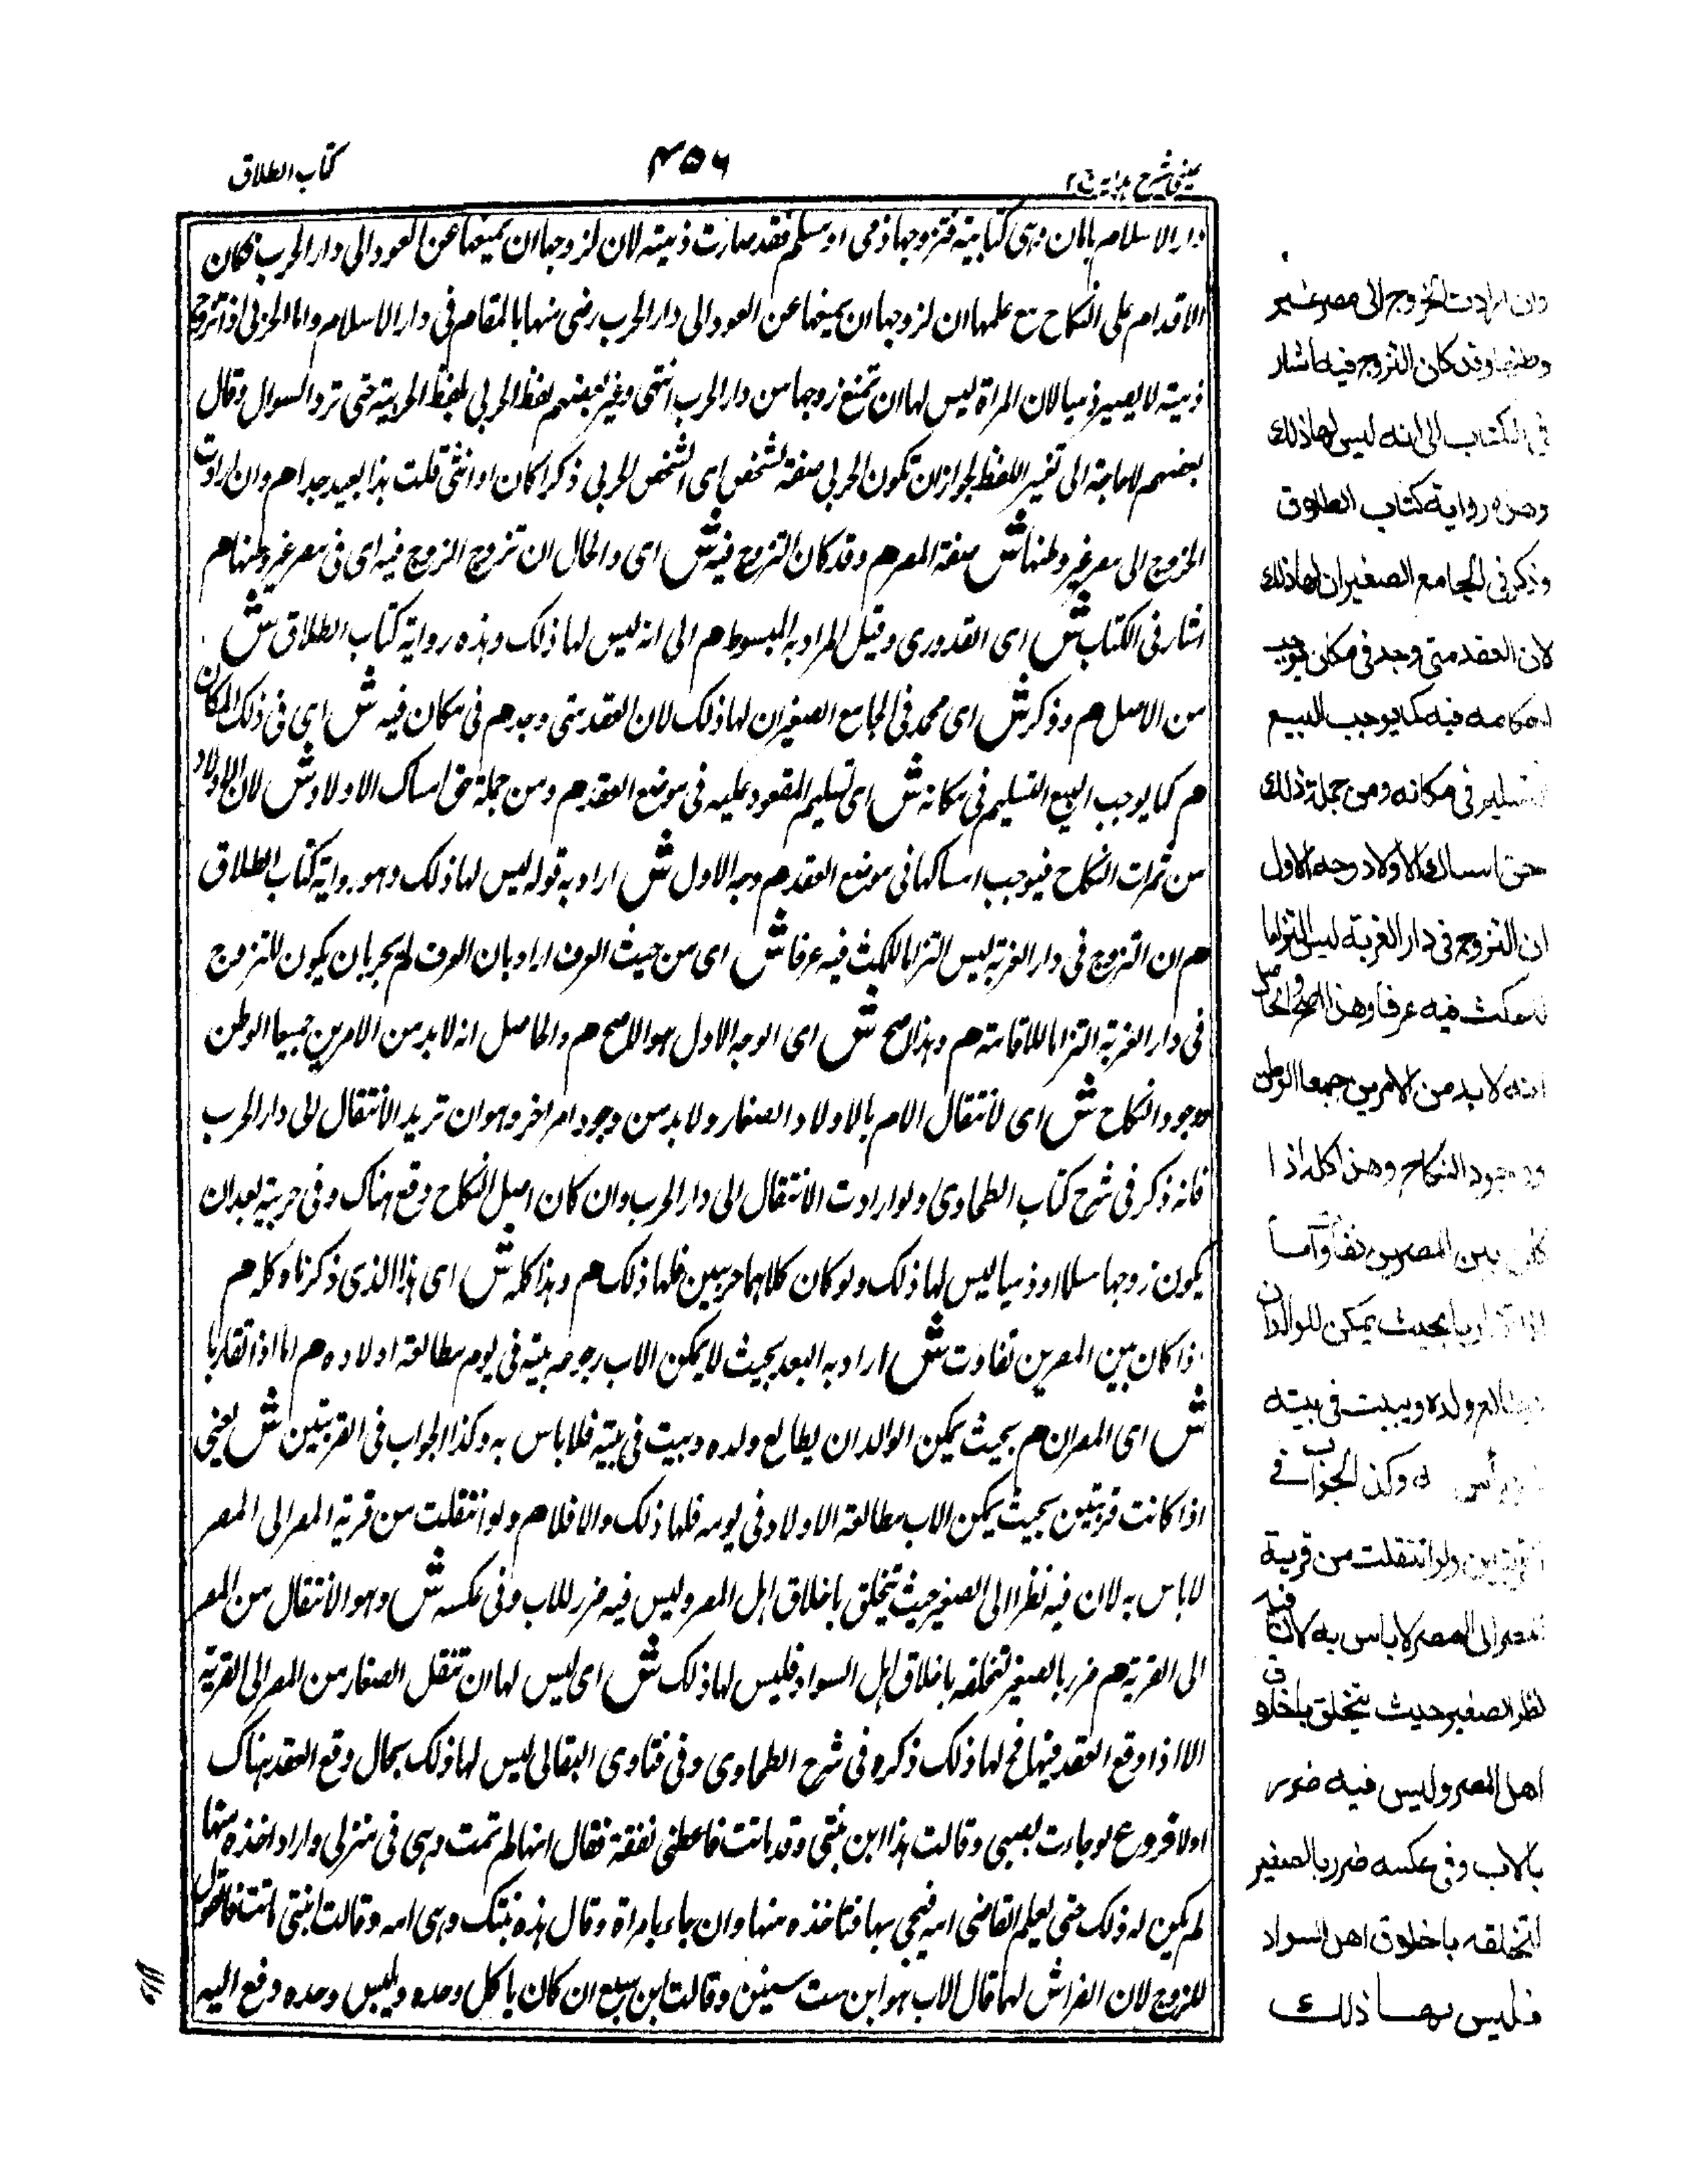 عينى شرح هدايه ج ٢
٤٥٦
كتاب الطلاق
دار الاسلام بامان وهى كتابية فتزوجها ذمى او مسلم فقد صارت ذمية لان لزوجها ان يمنعها عن العود الى دار الحرب فكان
الاقدام على النكاح مع علمها ان لزوجها ان يمنعها عن العود الى دار الحرب رضى منها بالمقام فى دار الاسلام واما الحربى اذا تزوج
ذمية لا يصير ذميا لان المراة ليس لها ان تمنع زوجها من دار الحرب انتهى وغير بعضهم لفظ الحربى بلفظ الحربية حتى ترد السوال وقال
بعضهم لا حاجة الى تغيير اللفظ لجواز ان تكون الحربى صفة لشخص اى الشخص الحربى ذكرا كان او انثى قلت هذا بعيد جدا هم وان ارادت
الخروج الى مصر غير وطنها ش صفة المصر هم وقد كان التزوج فيه ش اى والحال ان تزوج الزوج فيه اى فى مصر غير وطنها هم
اشار فى الكتاب ش اى القدورى وقيل المراد به المبسوط هم الى انه ليس لها ذلك وهذه رواية كتاب الطلاق ش
من الاصل هم وذكر ش اى محمد فى الجامع الصغير ان لها ذلك لان العقد متى وجد هم فى مكان فيه ش اى فى ذلك المكان
هم كما يوجب البيع التسليم فى مكانه ش اى تسليم المعقود عليه فى موضع العقد هم ومن جملة حق امساك الاولاد ش لان الاولاد
من ثمرات النكاح فيوجب امساكها فى موضع العقد هم وجه الاول ش اراد به قوله ليس لها ذلك وهو رواية كتاب الطلاق
هم ان التزوج فى دار الغربة ليس التزاما للمكث فيه عرفا ش اى من حيث العرف اراد بان العرف لم يجر بان يكون للتزوج
فى دار الغربة التزاما للاقامة هم وهذا اصح ش اى الوجه الاول هو الاصح هم والحاصل انه لا بد من الامرين جميعا الوطن
ووجود النكاح ش اى لانتقال الام بالاولاد الصغار ولا بد من وجود امر اخر وهو ان تريد الانتقال الى دار الحرب
فانه ذكر فى شرح كتاب الطحاوى ولو ارادت الانتقال الى دار الحرب وان كان اصل النكاح وقع هناك وفى حربية بعد ان
يكون زوجها مسلما او ذميا ليس لها ذلك ولو كان كلاهما حربيين فلها ذلك هم وهذا كله ش اى هذا الذى ذكرناه كله هم
اذا كان بين المصرين تفاوت ش اراد به البعد بحيث لا يمكن الاب رجوعه بيته فى يوم مطالعة اولاده هم اما اذا تقاربا
ش اى المصران هم بحيث يمكن الوالد ان يطالع ولده وبيت فى بيته فلا باس به وكذا الجواب فى القريتين ش يعنى
اذا كانت قريتين بحيث يمكن الاب مطالعة الاولاد فى يومه فلها ذلك والا فلا هم ولو انتقلت من قرية المصر الى المصر
لا باس به لان فيه نظرا الى الصغير حيث يتخلق باخلاق اهل المصر وليس فيه ضرر للاب وفى عكسه ش وهو الانتقال من المصر
الى القرية هم ضرر بالصغير لتخلقه باخلاق اهل السواد فليس لها ذلك ش اى ليس لها ان تنقل الصغار من المصر الى القرية
الا اذا وقع العقد فيها فح لها ذلك ذكره فى شرح الطحاوى وفى فتاوى البقالى ليس لها ذلك بحال وقع العقد هناك
او لا فروع لو جاءت بصبى وقالت هذا ابن بنتى وقد ماتت فاعطنى نفقة فقال انها لم تمت وهى فى منزلى واراد اخذه منها
لم يكن له ذلك حتى يعلم القاضى امه فيجئ بها فتاخذه منها وان جاء بامراة وقال هذه بنتك وهى امه وقالت ابنتى ماتت فالقول
للزوج لان الفراش لهما قال الاب هو ابن ست سنين وقالت ابن سبع ان كان ياكل وحده ويلبس وحده دفع اليه
وان ارادت الخروج الى مصر غير
وطنها وقد كان التزوج فيه اشار
فى الكتاب الى انه ليس لها ذلك
وهذه رواية كتاب الطلاق
وذكر فى الجامع الصغير ان لها ذلك
لان العقد متى وجد فى مكان يوجب
احكامه فيه كما يوجب البيع
التسليم فى مكانه ومن جملة ذلك
حق امساك الاولاد وجه الاول
ان التزوج فى دار الغربة ليس التزاما
للمكث فيه عرفا وهذا اصح والحاصل
انه لا بد من الامرين جميعا الوطن
ووجود النكاح وهذا كله اذا
كان بين المصرين تفاوت اما
اذا تقاربا بحيث يمكن للوالد ان
يطالع ولده ويبيت فى بيته
فلا بأس به وكذا الجواب فى
القريتين ولو انتقلت من قرية
المصر الى المصر لا باس به لان فيه
نظر الصغير حيث يتخلق باخلاق
اهل المصر وليس فيه ضرر
بالاب وفى عكسه ضرر بالصغير
لتخلقه باخلاق اهل السواد
فليس لها ذلك